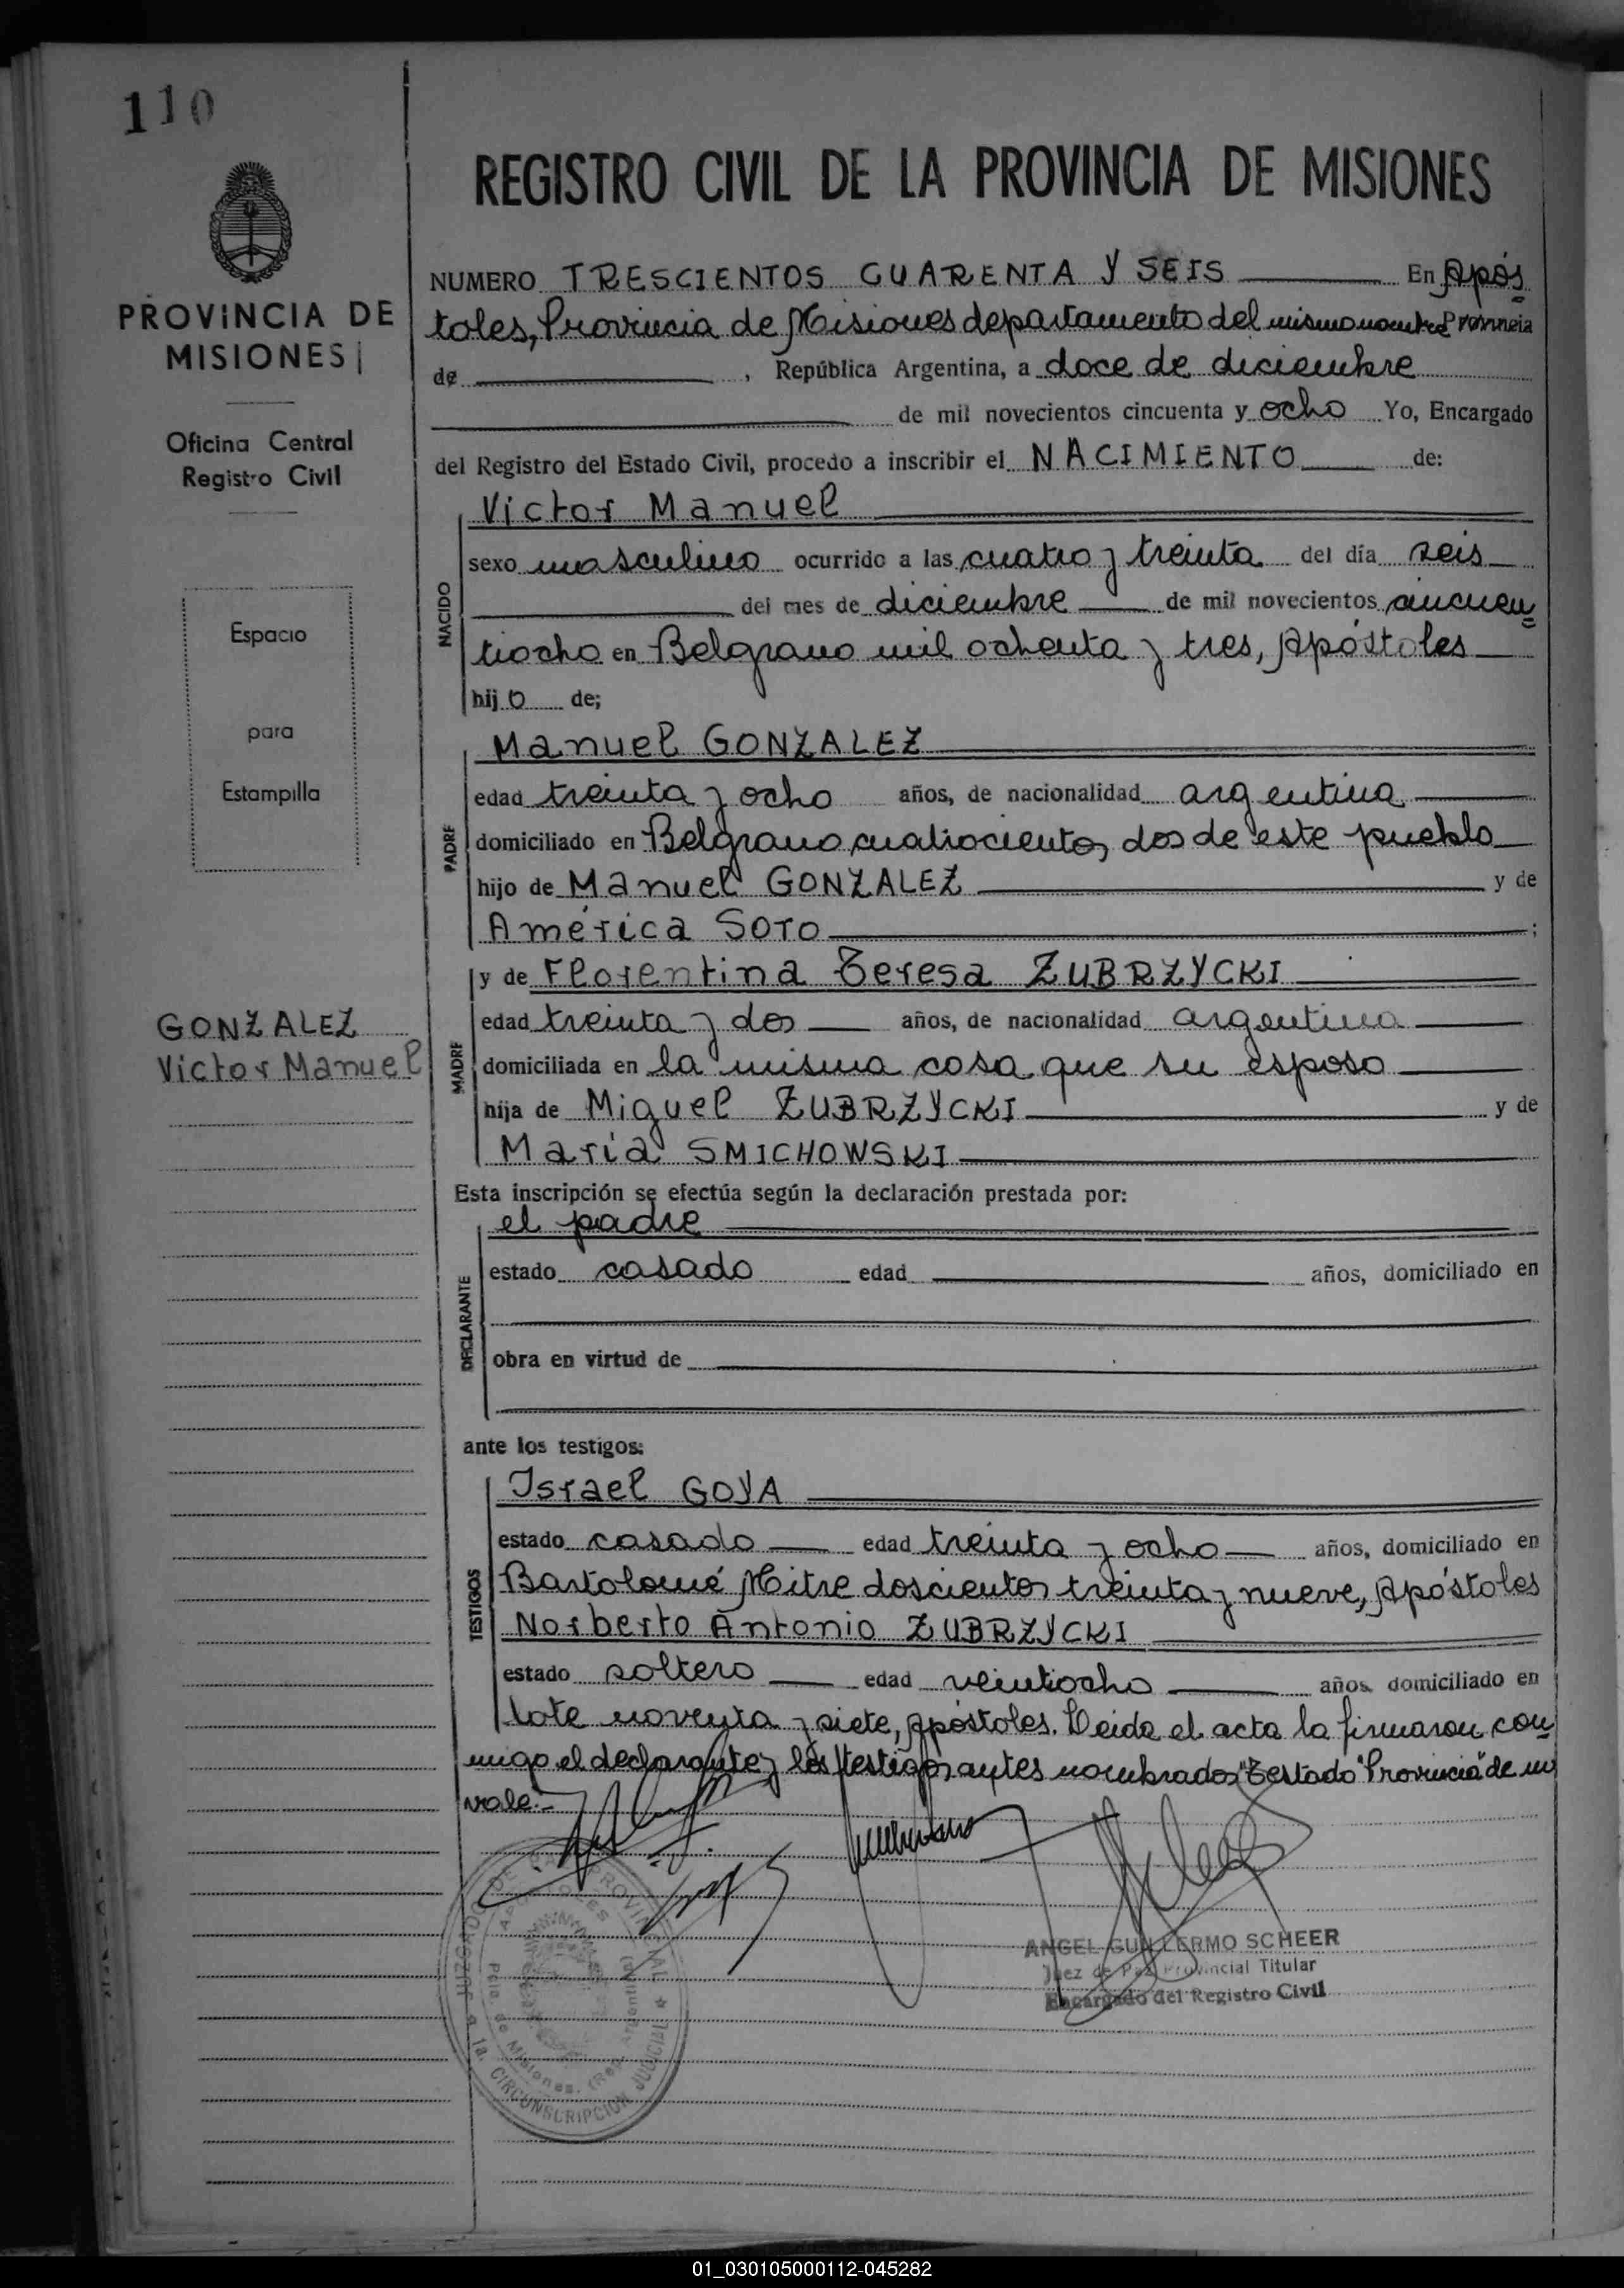 110
PROVINCIA DE
MISIONES
Oficina Central
Registro Civil
Espacio
para
Estampilla
GONZALEZ
Victor Manuel
REGISTRO CIVIL DE LA PROVINCIA DE MISIONES
NUMERO TRESCIENTOS CUARENTA Y SEIS En Após
toles, Provincia de Misiones departamento del mismo nombre Provincia
de , República Argentina, a doce de diciembre
de mil novecientos cincuenta y ocho Yo, Encargado
del Registro del Estado Civil, procedo a inscribir el NACIMIENTO de:
NACIDO
Victor Manuel
sexo masculino ocurrido a las cuatro y treinta del día seis
del mes de diciembre de mil novecientos cincuen
tiocho en Belgrano mil ochenta y tres, Apóstoles
hijo de;
PADRE
Manuel GONZALEZ
edad treinta y ocho años, de nacionalidad argentina
domiciliado en Belgrano cuatrocientos dos de este pueblo
hijo de Manuel GONZALEZ y de
América SOTO ;
MADRE
y de Florentina Teresa ZUBRZYCKI
edad treinta y dos años, de nacionalidad argentina
domiciliada en la misma casa que su esposo
hija de Miguel ZUBRZYCKI y de
María SMICHOWSKI
Esta inscripción se efectúa según la declaración prestada por:
DECLARANTE
el padre
estado casado edad años, domiciliado en
obra en virtud de
ante los testigos:
TESTIGOS
Israel GOYA
estado casado edad treinta y ocho años, domiciliado en
Bartolomé Mitre doscientos treinta y nueve, Apóstoles
Norberto Antonio ZUBRZYCKI
estado soltero edad veintiocho años domiciliado en
lote noventa y siete, Apóstoles. Leida el acta la firmaron con
migo el declarante y los testigos antes nombrados "Testado "Provincia" de no
vale.-
JUZGADO DE PAZ PROVINCIAL
APOSTOLES
Pcia. de Misiones. (Rep. Argentina)
1a. CIRCUNSCRIPCION JUDICIAL
ANGEL GUILLERMO SCHEER
Juez de Paz Provincial Titular
Encargado del Registro Civil
01_030105000112-045282